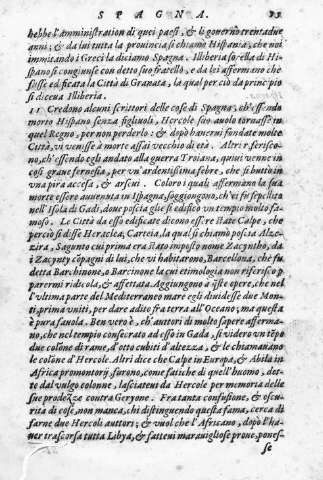 SPAGNA. 93
hebbe l'amministration di quei paesi, & li governò trentadue
anni; & da lui tutta la provincia si chiamò Hispania, che noi
immitando i Greci la diciamo Spagna. Illiberia sorella di Hi-
spano si congiunse con detto suo fratello, e da lei affermano che
fusse edificata la Città di Granata, la qual per ciò da principio
si diceua Illiberia.
11 Credono alcuni scrittori delle cose di Spagna, ch'essendo
morto Hispano senza figliuoli, Hercole suo auolo tornasse in
quel Regno, per non perderlo: & dopò hauerui fondate molte
Città, vi venisse à morte assai vecchio di età. Altri riferisco-
no, ch'essendo egli andato alla guerra Troiana, quiui venne in
così graue fernesia, per vn'ardentissima febre, che si buttò in
vna pira accesa, & arseui. Coloro i quali affermano la sua
morte essere auuenuta in Ispagna, soggiongono, ch'ei fù sepellito
nell'Isola di Gadi, doue poscia gli si edificò vn tempio molto fa-
moso. Le Città da esso edificate dicono essere state Calpe, che
perciò si disse Heraclea, Carteia, la qual si chiamò poscia Alze-
zira, Sagunto cui prima era stato imposto nome Zacyntho, da
i Zacynty cōpagni di lui, che vi habitarono, Barcellona, che fu
detta Barchinone, o Barcinone la cui etimologia non riferisco p
parermi ridicola, & affettata. Aggiungono a q̃ste opere, che nel
l'vltima parte del Mediterraneo mare egli diuidesse due Mon-
ti, prima vniti, per dare adito fra terra all'Oceano, ma questa
è pura fauola. Ben vero è, ch'autori di molto sapere afferma-
no, che nel tempio consecrato ad esso in Gada, si videro vn tēpo
due colōne di rame, d'otto cubiti d'altezza, & le chiamanano
le colōne d'Hercole. Altri dice che Calpe in Europa, & Abila in
Africa promontorij, furono, come fatiche di quell'huomo, det-
te dal vulgo colonne, lasciateui da Hercole per memoria delle
sue prodezze contra Geryone. Fra tanta confusione, & oscu-
rità di cose, non manca, chi distinguendo questa fama, cerca di
farne due Hercoli autori; & vuol che l'Africano, dopò l'ha-
uer trascorsa tutta Libya, & fatteui marauigliose proue, ponesse
se